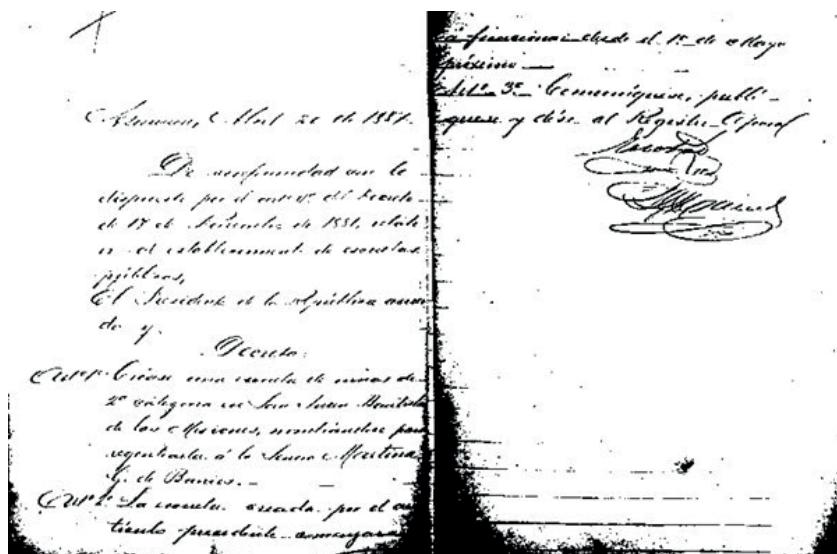 Asuncion, Abril 20 de 1887.
De conformidad con lo
dispuesto por el art. del Decreto
de 17 de de 1881,
el establecimiento de escuelas
públicas,
El Presidente de la República acuer
da y
Decreta:
Artº 1º Créase una escuela de niñas de
2ª categoria en San Juan Bautista
de las Misiones, nombrándose para
regentarla á la Señora Martina
G. de Barrios.
Artº 2º La escuela creada por el ar
tículo precedente comenzará
á funcionar desde el 1º de Mayo
próximo
Artº 3º Comuníquese, publí-
quese y dése al Registro Oficial
Escobar